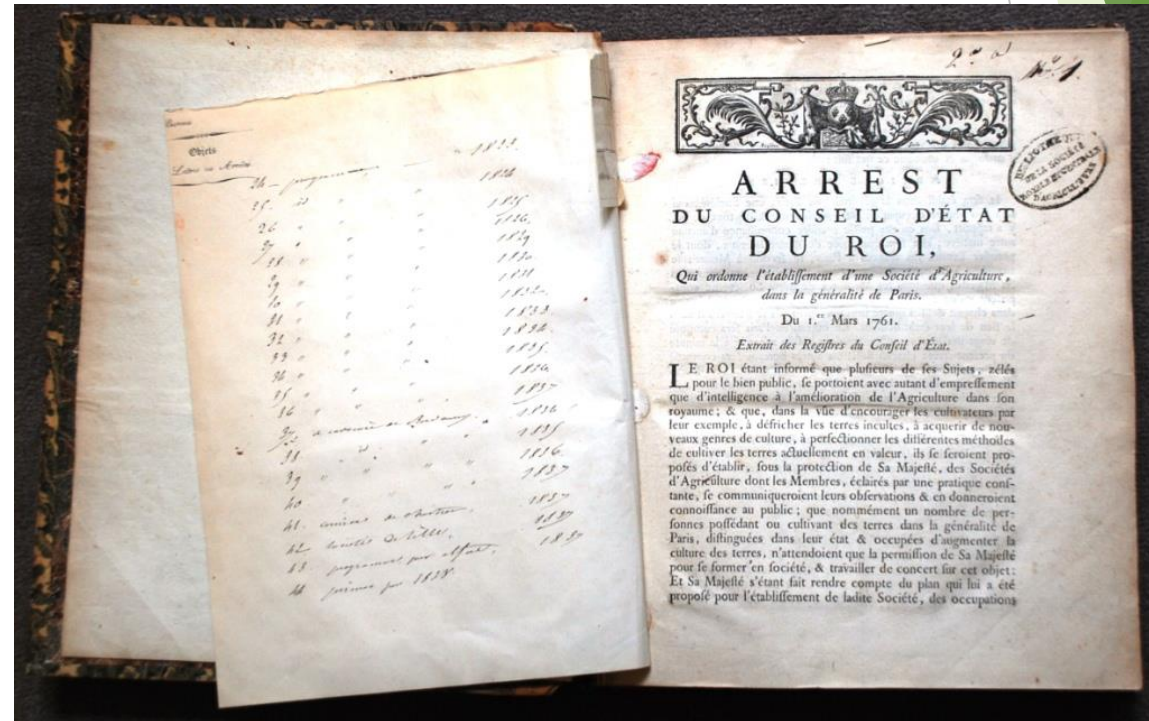 Bureau
Objets
Lettre ou Année
24 - programme 1833.
25. id " 1824
26 " " 1825
1826.
1829
1830
1831
1832.
1833
32 " " 1834.
33 " " 1835.
1836
1837
1836
38 id. 1835
39 " " 1836.
40 " " 1837
41. 1837
42 Sociétés de Villes. 1837
43 programme pour 1837
44 primes pour 1838.
2.e a
N.o 1.
BIBLIOTHEQUE
DE LA SOCIÉTÉ
ROYALE ET CENTRALE
D'AGRICULTURE
ARREST
DU CONSEIL D'ÉTAT
DU ROI,
Qui ordonne l'établissement d'une Société d'Agriculture,
dans la généralité de Paris.
Du 1.er Mars 1761.
Extrait des Registres du Conseil d'État.
LE ROI étant informé que plusieurs de ses Sujets, zélés
pour le bien public, se portoient avec autant d'empressement
que d'intelligence à l'amélioration de l'Agriculture dans son
royaume; & que, dans la vûe d'encourager les cultivateurs par
leur exemple, à défricher les terres incultes, à acquerir de nou-
veaux genres de culture, à perfectionner les différentes méthodes
de cultiver les terres actuellement en valeur, ils se seroient pro-
posés d'établir, sous la protection de Sa Majesté, des Sociétés
d'Agriculture dont les Membres, éclairés par une pratique cons-
tante, se communiqueroient leurs observations & en donneroient
connoissance au public; que nommément un nombre de per-
sonnes possédant ou cultivant des terres dans la généralité de
Paris, distinguées dans leur état & occupées d'augmenter la
culture des terres, n'attendoient que la permission de Sa Majesté
pour se former en société, & travailler de concert sur cet objet:
Et Sa Majesté s'étant fait rendre compte du plan qui lui a été
proposé pour l'établissement de ladite Société, des occupations